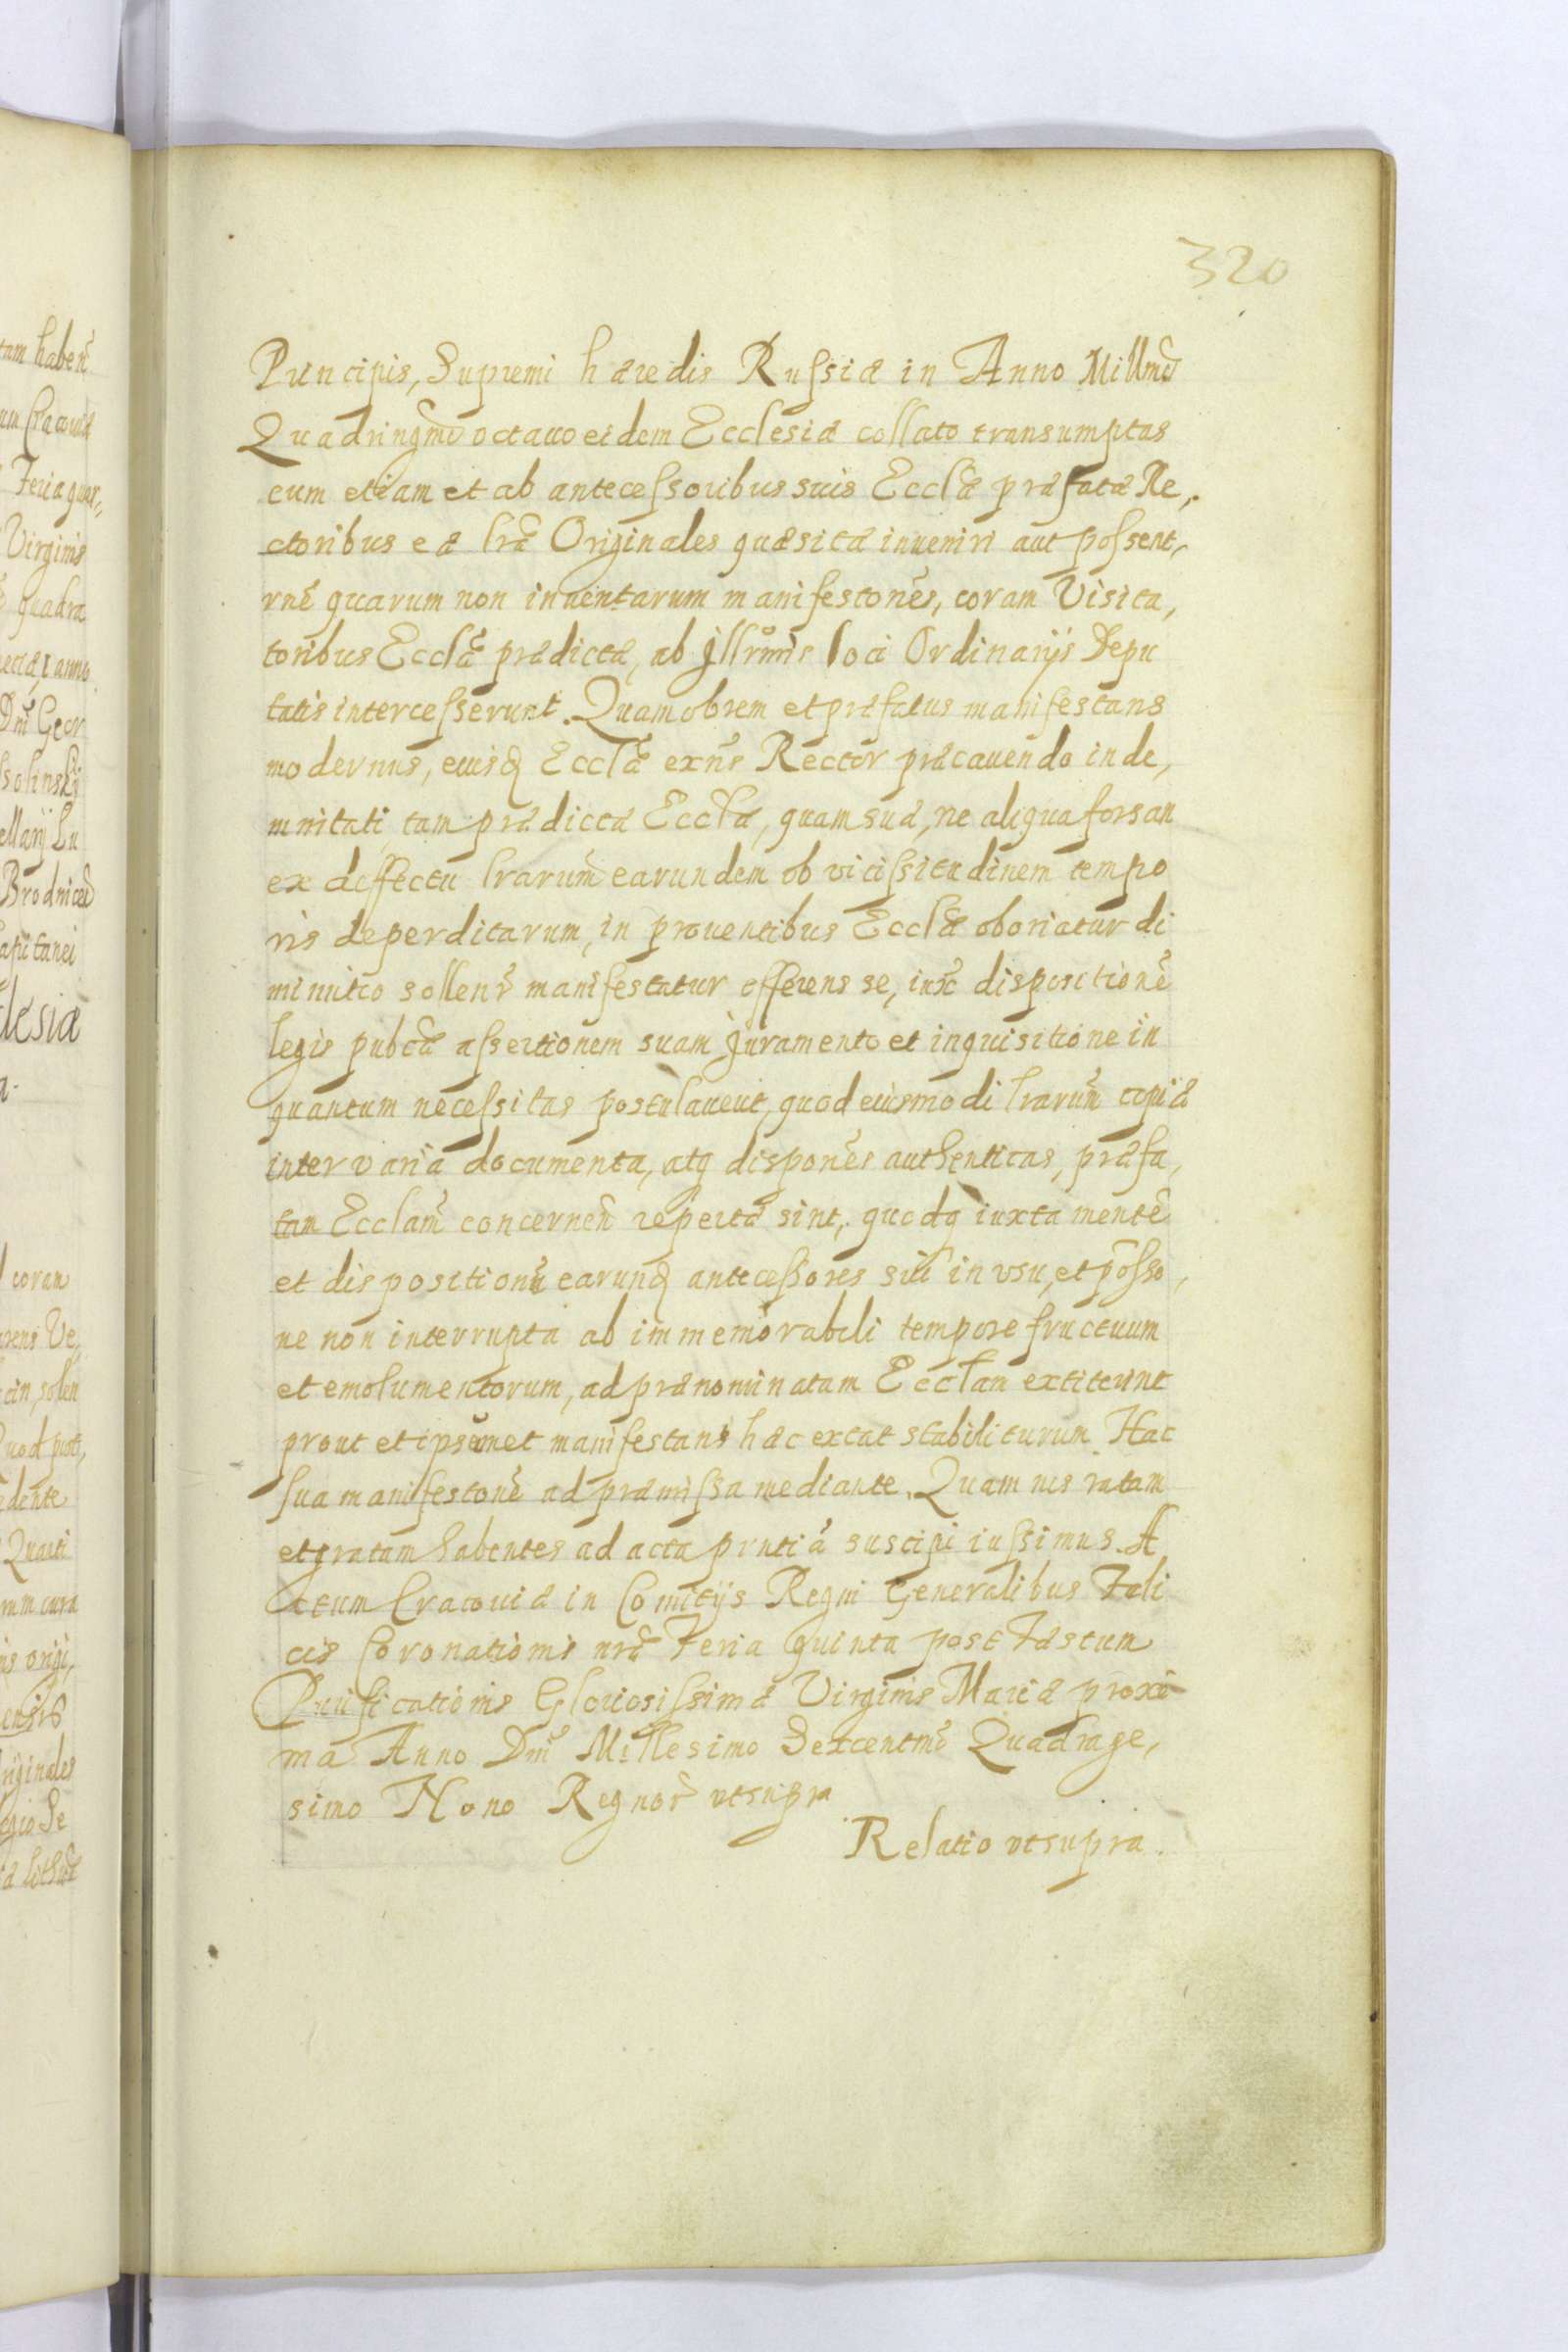 320
Principis, Supremi hæredis Russiæ in Anno Millmõ
Quadringmõ octauo eidem Ecclesiæ collato transumptas
cum etiam et ab antecessoribus suis Ecclæ præfatæ Re,
ctoribus eæ lræ Originales quæsitæ inueniri aut possent,
rnẽ quarum non inuentarum manifestones, coram Visita,
toribus Ecclæ prædictæ, ab Jllrmis loci Ordinarijs Depu
tatis intercesserunt. Quamobrem et præfatus manifestans
modernus, eiusq Ecclæ exñs Rector præcauendo inde,
mnitati, tam prædictæ Ecclæ, quam suæ, ne aliqua forsan
ex deffectu lrarum earundem ob vicissitudinem tempo
ris deperditarum, in prouentibus Ecclæ oboriatur di
minutio sollenr manifestatur offerens se, iuxᵃ dispositionẽ
legis pubcæ assertionem suam juramento et inquisitione in
quantum necessitas postulauerit, quod eiusmodi lrarum copiæ
inter varia documenta, atq dispones authenticas, præfa,
tam Ecclam concerneñ repertæ sint, quodq iuxta mentẽ
et dispositionẽ earunq antecessores sui in vsu, et possõ,
ne non interrupta ab immemorabili tempore fructuum
et emolumentorum, ad prænominatam Ecclam extiterint
prout et ipsemet manifestans hæc extat stabiliturum. Hac
sua manifestonẽ ad præmissa mediante. Quam nos ratam
et gratam habentes ad acta prntia suscipi iussimus. A
ctum Cracouiæ in Comitijs Regni Generalibus Fæli
cis Coronationis nræ Feria quinta post Fæstum
Purificationis Gloriosissimæ Virginis Mariæ proxi
ma Anno Dnĩ Millesimo Sexcentmõ Quadrage,
simo Nono Regnor̃ vtsupra
Relatio vtsupra.